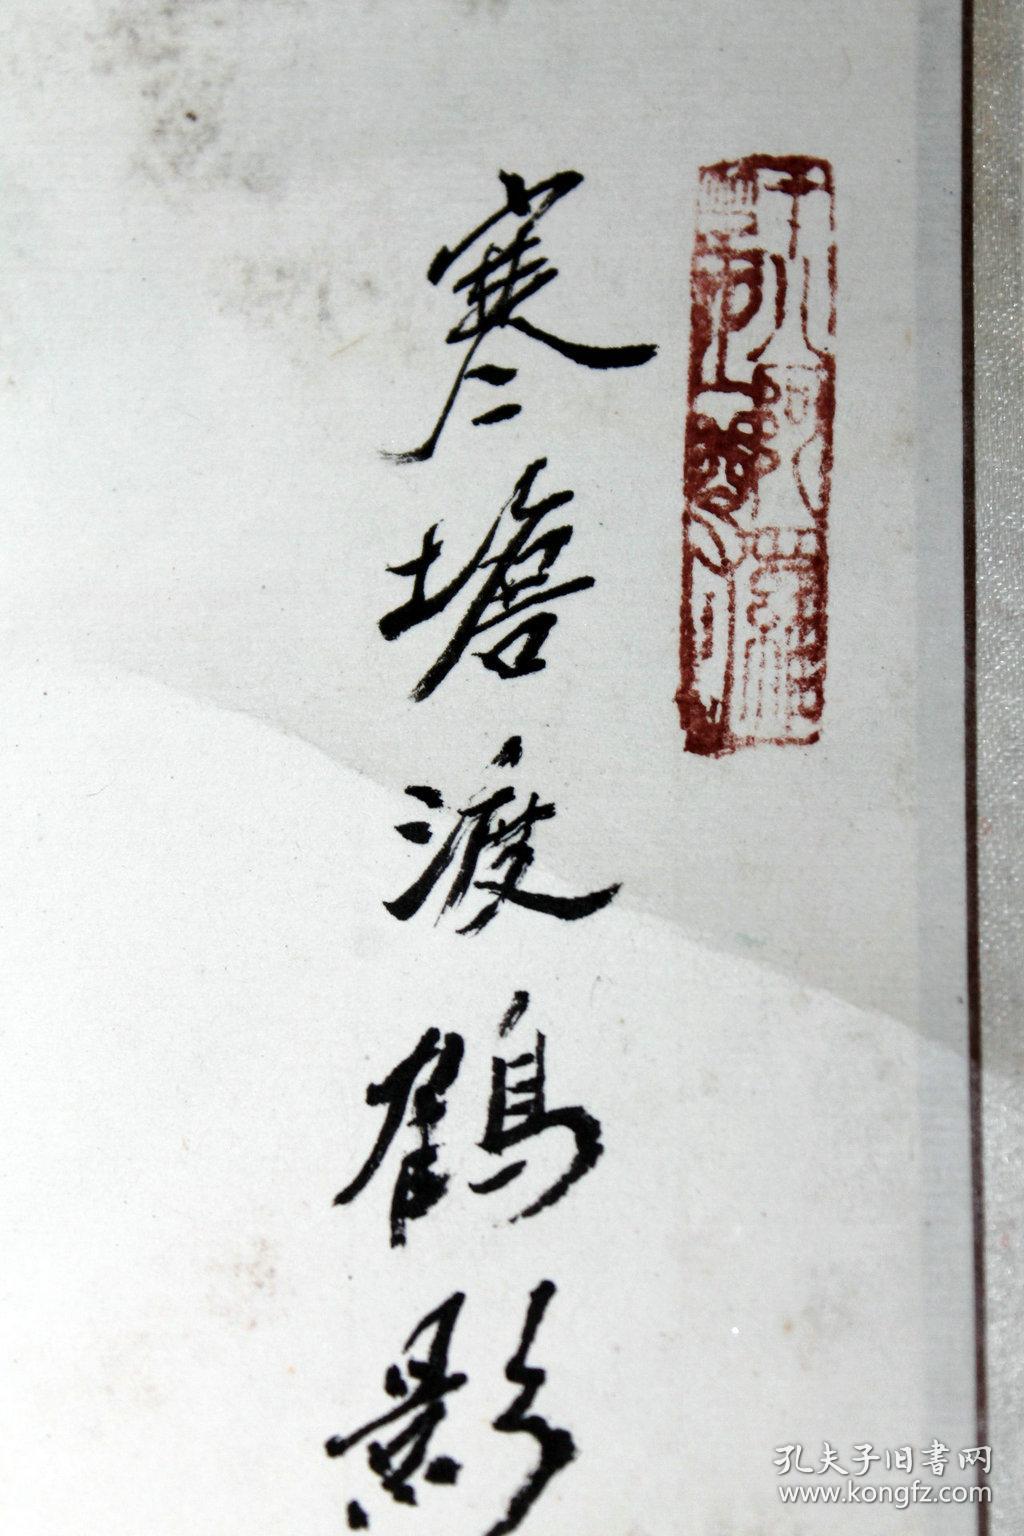 寒塘渡鶴影
孔夫子旧书网
www.kongfz.com